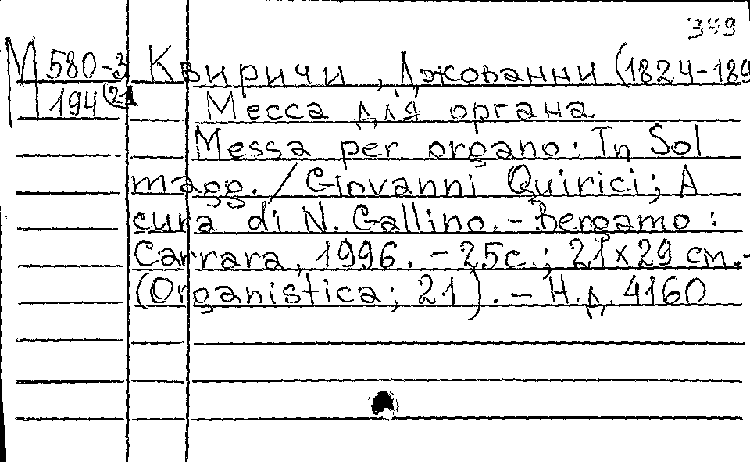 349
М 580-3 Квиричи, Джованни (1824-189
194(21 Месса для органа
Messa per organo: In Sol
magg. / Giovanni Quirici; A
cura di N. Gallino. - Bergamo :
Carrara, 1996. - 25с.; 21x29 см.-
(Organistica; 21). - Н.д. 4160